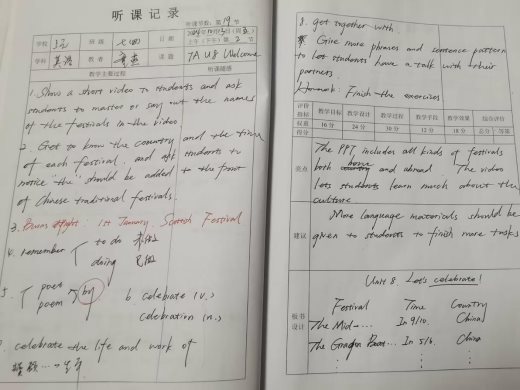 听课记录
听课节数:第19节
学校
班级 七(四)
上午(下午)第2节
学科 英语
教者
课题 7A U8 Welcome
教学主要过程
听课随感
1. Show a short video to students and ask
students to master or say out the names
of the festivals in the video
2. Get to know the country and the time
of each festival, and ask students to
notice "the" should be added to the front
of Chinese traditional festivals.
3. Burns Night: 1st January. Scottish Festival
4. remember to do 未做
doing 已做
5. poet
poem
by
6. celebrate (v.)
celebration (n.)
celebrate the life and work of
8. get together with
Give more phrases and sentence pattern
to let students have a talk with their
partners.
Homework: Finish the exercises
评价指标
教学目标 教学设计 教学过程 教学手段 教学效果 综合评价
权重 16分 24分 30分 12分 18分 总分 等第
亮点
The PPT includes all kinds of festivals
both home and abroad. The video
lets students learn much about the
culture
建议
More language materials should be
given to students to finish more tasks
板书设计
Unit 8 Let's celebrate!
Festival Time Country
The Mid-... In 9/10. China
The Dragon Boat... In 5/6. China